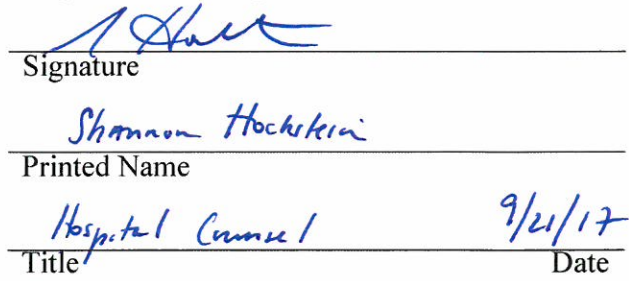 Signature
Shannon Hochstein
Printed Name
Hospital Counsel 9/21/17
Title Date